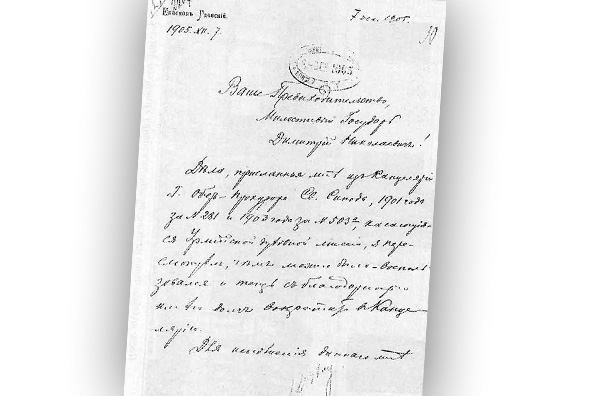 Епископъ Гдовскій.
1905. XII. 7.
7 дек. 1905.
1905
Ваше Превосходительство,
Милостивый Государь
Димитрій Николаевичъ!
Дѣла, присланныя мнѣ изъ Канцеляріи
Г. Оберъ-Прокурора Св. Синода, 1901 года
за № 281 и 1903 года за № 5032, касающія-
ся Урмійской духовной миссіи, я пере-
смотрѣлъ, чѣмъ можно было-восполь-
зовался и съ благодарностію
въ Канце-
лярію.
Для даннаго мнѣ